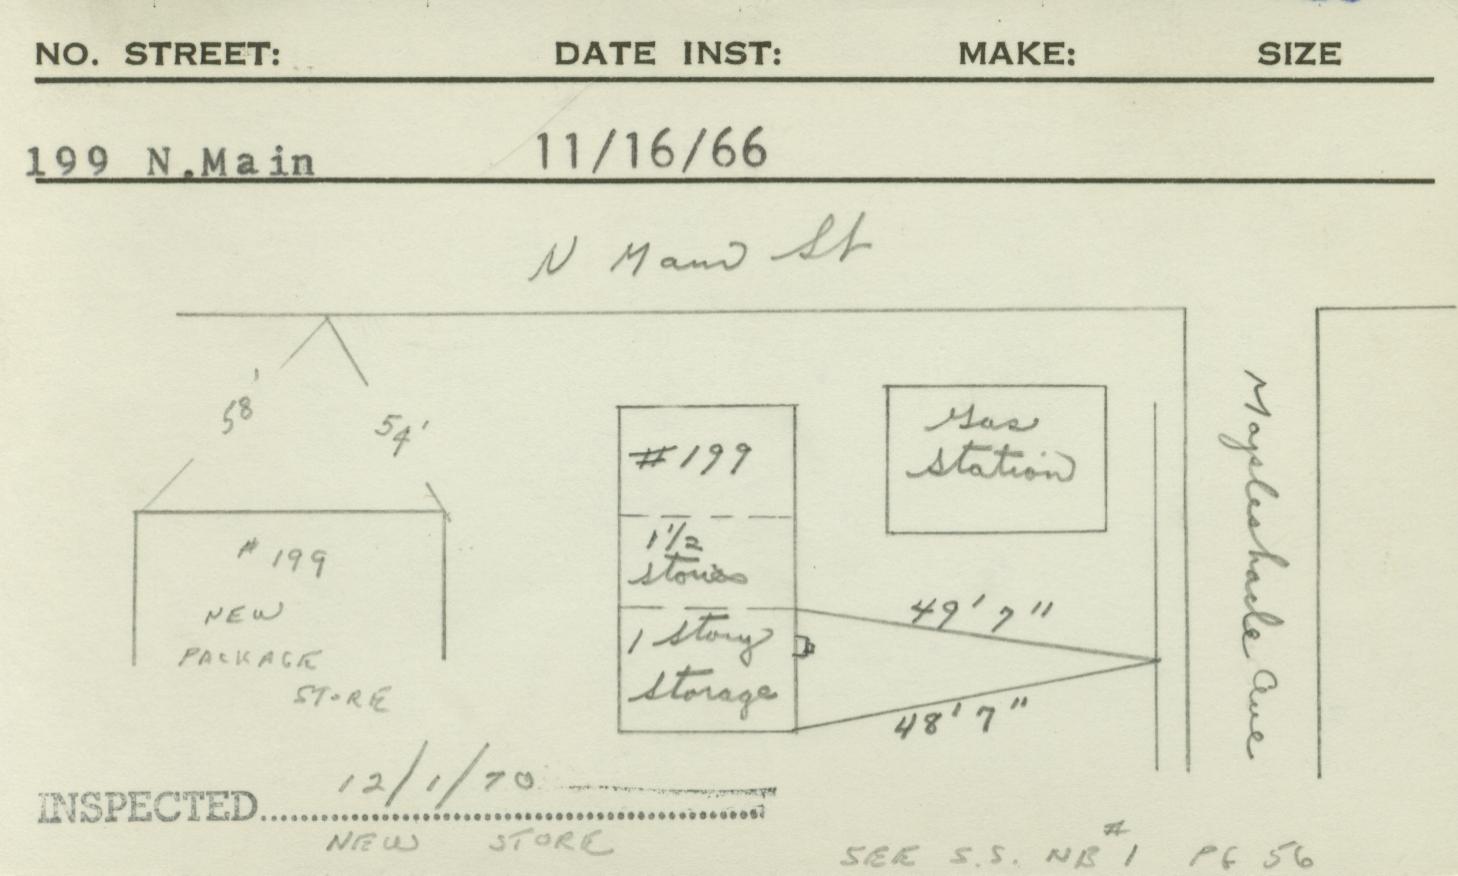 NO. STREET: DATE INST: MAKE: SIZE
199 N.Main 11/16/66
N Main St
58'
54'
# 199
NEW
PACKAGE
STORE
#199
1 1/2
stories
1 Story
Storage
Gas
Station
49' 7"
48' 7"
Maysleshade Ave
INSPECTED 12/1/70
NEW STORE
SEE S.S. NB #1 PG 56